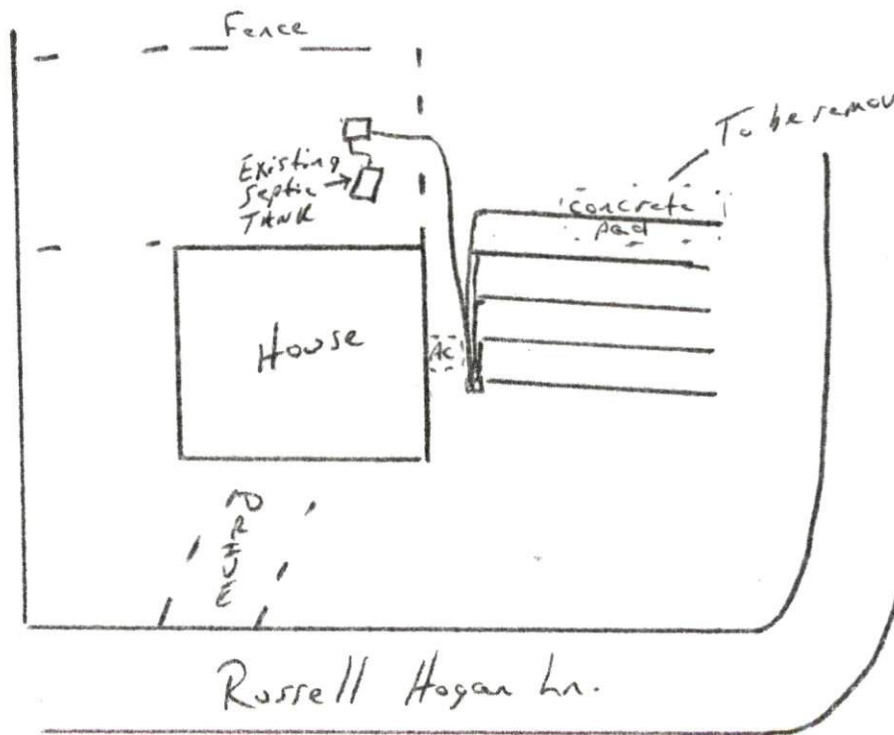 Fence
To be remov
Existing
Septic
TANK
concrete
pad
House
AC
DRIVE
Russell Hogan Ln.